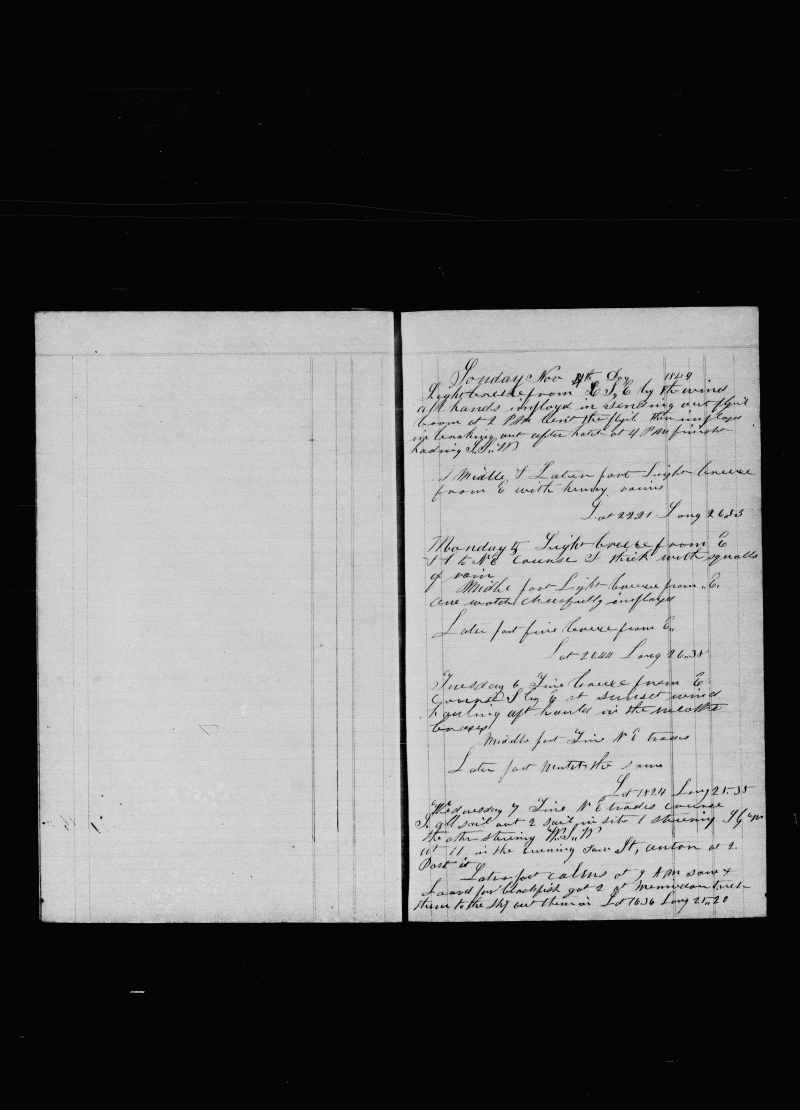 Sonday Nov 4th Day 1849
Light breese from E S E by the wind
all hands imployd in sending out flyil
boom at 2 PM bent the flyil then imployd
in braking out after hatch at 4 PM finisht
hading S.S.W
Middle & Later part Light breese
from E with heavy rains
Lat 2221 Long 26.35
Monday 5 Light breese from E
to NE Course S thick with squalls
of rain
Middle part Light breese from E.
one watch cheerfully imployd
Later part fine breese from E.
Lat 2044 Long 26.38
Tuesday 6 Fine breese from E
Course S by E at sunset wind
hauling aft hauld in the weather
braces
Middle part Fine N E trades
Later part much the same
Lat 1824 Long 25.35
Wednesday 7 Fine N E trades course
S. all sail out 2 sail in site 1 stering S by
the other stering W.S.W
at 11 in the evening saw St, anton at 2
Past it
Later part calms at 9 A M saw &
Loard for blackfish got 2 at
them to the ship cut them in Lat 1636 Long 25.20